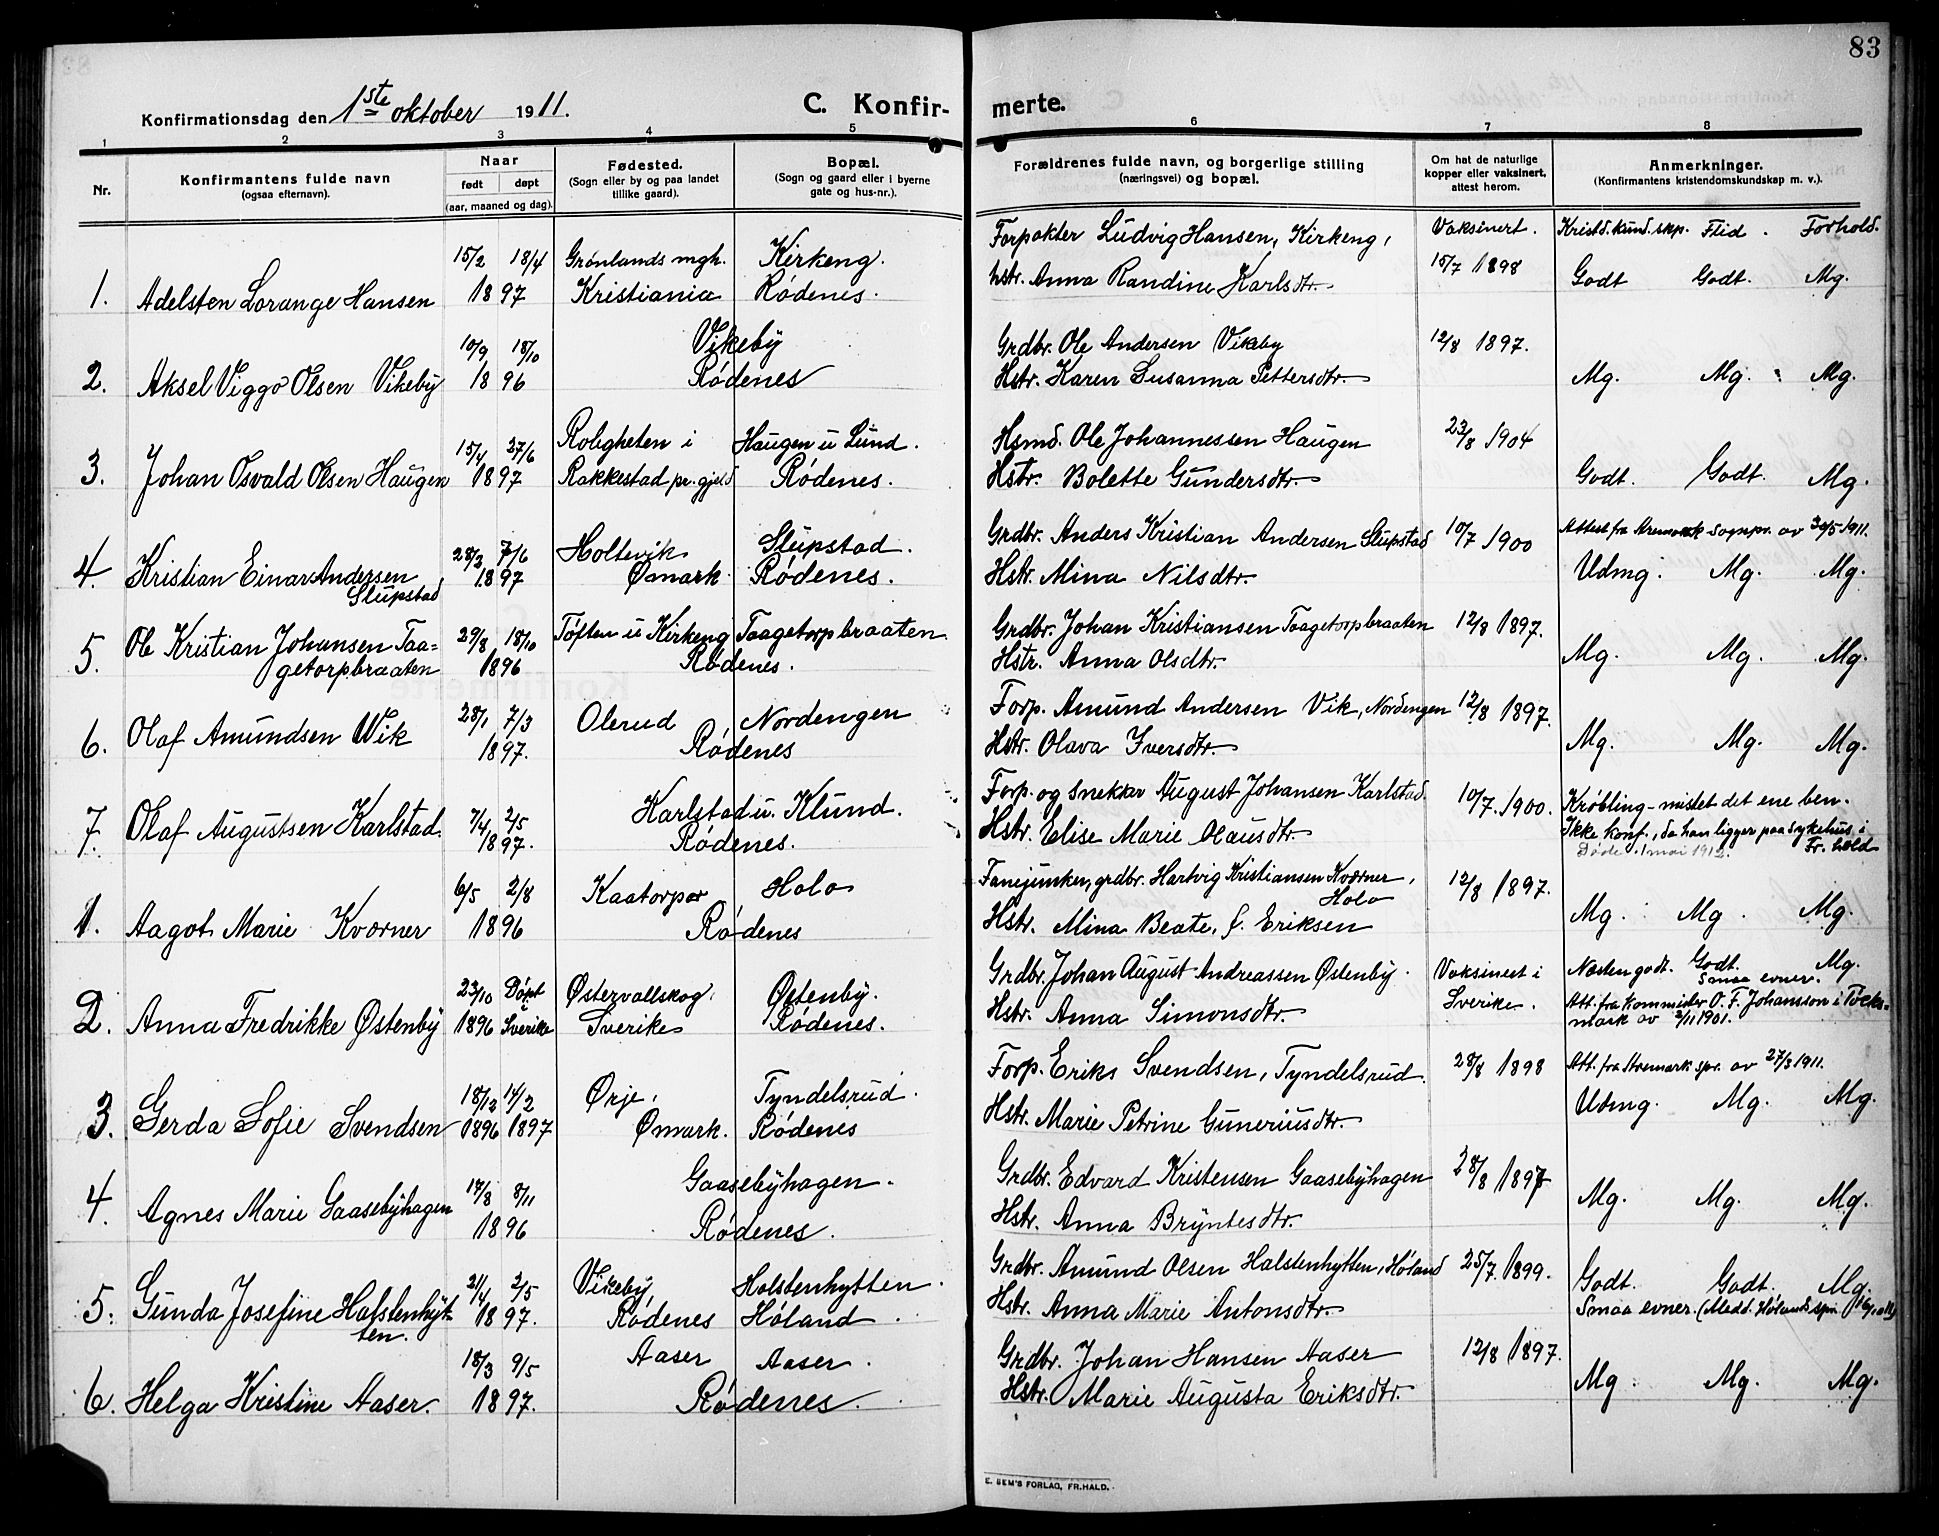 83
Konfirmationsdag den 1ste oktober 1911.
C. Konfir- merte.
1 2 3 4 5 6 7 8
Nr.
Konfirmantens fulde navn
(ogsaa efternavn).
Naar
født døpt
(aar, maaned og dag).
Fødested.
(Sogn eller by og paa landet
tillike gaard).
Bopæl.
(Sogn og gaard eller i byerne
gate og hus-nr.).
Forældrenes fulde navn, og borgerlige stilling
(næringsvei) og bopæl.
Om hat de naturlige
kopper eller vaksinert,
attest herom.
Anmerkninger.
(Konfirmantens kristendomskundskap m. v.).
15/2 18/4 Grønlands mgh. Kirkeng. Forpakter Ludvig Hansen, Kirkeng, Vaksinert. Kristd.kundskp. Flid. Forhold.
1. Adelsten Lorange Hansen 1897 Kristiania Rødenes. hstr. Anna Randine Karlsdtr. 15/7 1898 Godt Godt. Mg.
10/9 18/10 Vikeby Grdbr. Ole Andersen Vikeby 12/8 1897.
2. Aksel Viggo Olsen Vikeby 1896 Rødenes Hstr. Karen Susanna Pettersdtr. Mg. Mg. Mg.
15/4 27/6 Roligheten i Haugen u Lund. Hsmd. Ole Johannessen Haugen 23/8 1904
3. Johan Osvald Olsen Haugen 1897 Rakkestad pr.gjeld Rødenes. Hstr. Bolette Gundersdtr. Godt. Godt. Mg.
28/3 7/6 Holtevik Slupstad. Grdbr. Anders Kristian Andersen Slupstad 10/7 1900 Attest fra Aremark Sognpr. av 30/5 1911.
4. Kristian Einar Andersen 1897 Ømark. Rødenes. Hstr. Mina Nilsdtr. Udmg. Mg. Mg.
Slupstad
5. Ole Kristian Johansen Taa= 29/8 18/10 Tøften u Kirkeng Taagetorpbraaten. Grdbr. Johan Kristiansen Taagetorpbraaten 12/8 1897.
getorpbraaten 1896 Rødenes. Hstr. Anna Olsdtr. Mg. Mg. Mg.
28/1 7/3 Olerud Nordengen Forp. Amund Andersen Vik, Nordengen 12/8 1897.
6. Olaf Amundsen Wik 1897. Rødenes Hstr. Olava Iversdtr. Mg. Mg. Mg.
7/4 2/5 Karlstad u. Klund. Forp. og Snekker August Johansen Karlstad. 10/7 1900. Krøbling - mistet det ene ben.
7. Olaf Augustsen Karlstad. 1897. Rødenes. Hstr. Elise Marie Olausdtr. Ikke konf., da han ligger paa sykehus i
Fr.hald
Døde 1 mai 1912.
6/5 2/8 Kaatorper Holo Fanejunker, grdbr. Hartvig Kristiansen Kværner, 12/8 1897.
Holo
1. Aagot Marie Kværner 1896 Rødenes Hstr. Mina Beate, f. Eriksen Mg. Mg. Mg.
23/10 Døpt Østervallskog, Østenby. Grdbr. Johan August Andreassen Østenby. Vaksinert i Næsten godt. Godt. Mg.
Smaa evner.
2. Anna Fredrikke Østenby 1896 i Sverike Sverike Rødenes. Hstr. Anna Simonsdtr. Sverike. Att. fra Kommister O. F. Johansson i Töcks=
mark av 2/11 1901.
18/12 14/2 Ørje, Tyndelsrud. Forp. Eriks Svendsen, Tyndelsrud. 28/8 1898 Att. fra Aremark spr. av 27/3 1911.
3. Gerda Sofie Svendsen 1896 1897 Ømark. Rødenes Hstr. Marie Petrine Guneriusdtr. Udmg. Mg. Mg.
14/8 8/11 Gaasebyhagen. Grdbr. Edvard Kristensen Gaasebyhagen 28/8 1897
4. Agnes Marie Gaasebyhagen 1896 Rødenes. Hstr. Anna Bryntesdtr. Mg. Mg. Mg.
21/4 2/5 Vikeby, Halstenhytten. Grdbr. Amund Olsen Halstenhytten, Høland 25/7 1899. Godt. Godt. Mg.
5. Gunda Josefine Halstenhyt- 1897. Rødenes Høland. Hstr. Anna Marie Antonsdtr. Smaa evner. (Medd. Hølands spr.
ten.
18/3 9/5 Aaser Aaser. Grdbr. Johan Hansen Aaser 12/8 1897.
6. Helga Kristine Aaser. 1897. Rødenes. Hstr. Marie Augusta Eriksdtr. Mg. Mg. Mg.
E. SEM'S FORLAG, FR.HALD.